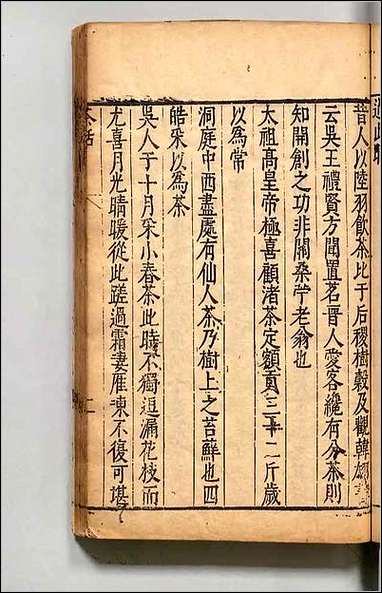 昔人以陸羽飲茶比于后稷樹穀及觀韓翃
云吳王禮賢方聞置茗晉人愛客纔有分茶則
知開創之功非關桑苧老翁也
太祖高皇帝極喜顧渚茶定額貢三十二斤歲
以爲常
洞庭中西盡處有仙人茶乃樹上之苔蘚也四
皓采以爲茶
吳人于十月采小春茶此時不獨逗漏花枝而
尤喜月光晴暖從此蹉過霜凄雁凍不復可堪
茶話
二